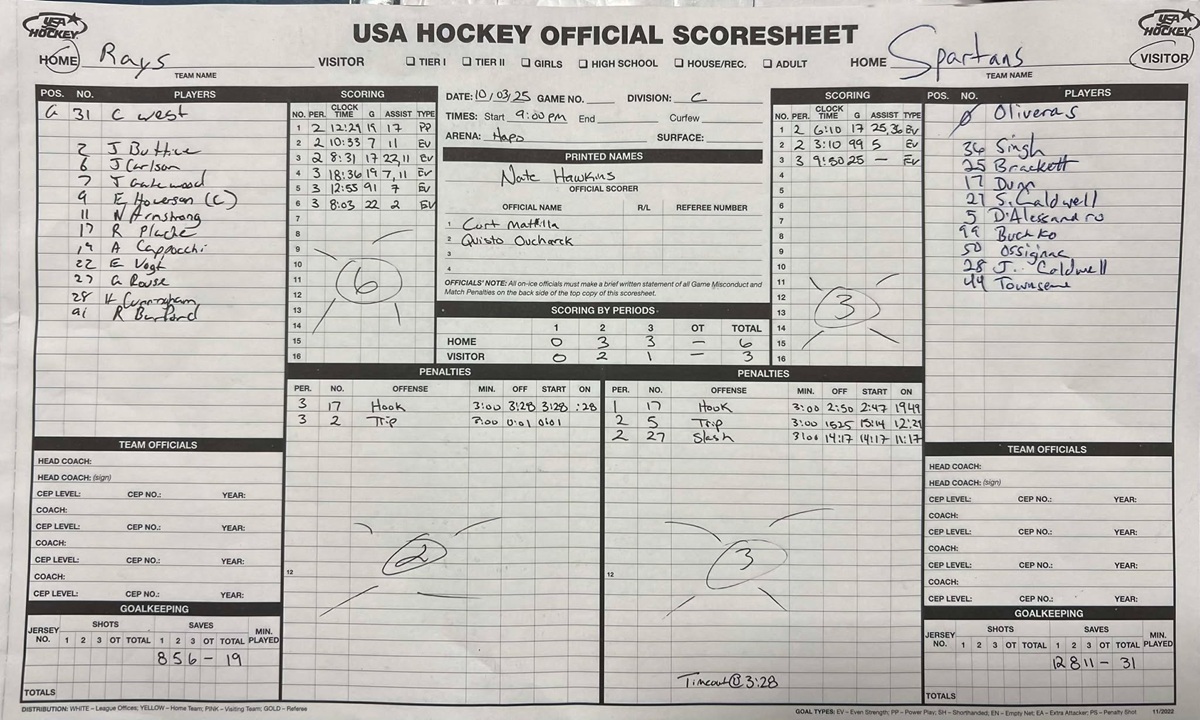 USA HOCKEY
USA HOCKEY OFFICIAL SCORESHEET
USA HOCKEY
HOME Rays VISITOR
TEAM NAME
☐ TIER I ☐ TIER II ☐ GIRLS ☐ HIGH SCHOOL ☐ HOUSE/REC. ☐ ADULT
HOME Spartans VISITOR
TEAM NAME
POS. NO. PLAYERS
G 31 C West
2 J Buttice
6 J Carlson
7 J Gatewood
9 E Hoverson (C)
11 N Armstrong
17 R Plache
19 A Cappocchi
22 E Vogt
27 G Rouse
28 K Cunningham
91 R Burford
SCORING
NO. PER. CLOCK TIME G ASSIST TYPE
1 2 12:29 19 17 PP
2 2 10:53 7 11 EV
3 2 8:31 17 22,11 EV
4 3 18:36 19 7,11 EV
5 3 12:55 91 7 EV
6 3 8:03 22 2 EV
7
8
9
10
11
12
13
14
15
16
6
DATE: 10/03/25 GAME NO. DIVISION: C
TIMES: Start 9:00 pm End Curfew
ARENA: Hapo SURFACE:
PRINTED NAMES
Nate Hawkins
OFFICIAL SCORER
OFFICIAL NAME R/L REFEREE NUMBER
1 Curt Mattila
2 Quisto Oucharek
3
4
OFFICIALS' NOTE: All on-ice officials must make a brief written statement of all Game Misconduct and
Match Penalties on the back side of the top copy of this scoresheet.
SCORING BY PERIODS
1 2 3 OT TOTAL
HOME 0 3 3 – 6
VISITOR 0 2 1 – 3
SCORING
NO. PER. CLOCK TIME G ASSIST TYPE
1 2 6:10 17 25,36 EV
2 2 3:10 99 5 EV
3 3 9:50 25 – EV
4
5
6
7
8
9
10
11
12
13
14
15
16
3
POS. NO. PLAYERS
Ø Oliveras
36 Singh
25 Brackett
17 Dunn
27 S. Caldwell
5 D'Alessandro
99 Buchko
50 Ossignac
28 J. Caldwell
44 Townsend
PENALTIES
PER. NO. OFFENSE MIN. OFF START ON
3 17 Hook 3:00 3:28 3:28 :28
3 2 Trip 3:00 0:01 0:01
12
2
PENALTIES
PER. NO. OFFENSE MIN. OFF START ON
1 17 Hook 3:00 2:50 2:47 19:49
2 5 Trip 3:00 1525 15:14 12:29
2 27 Slash 3:00 14:17 14:17 11:17
12
3
Timeout @ 3:28
TEAM OFFICIALS
HEAD COACH:
HEAD COACH: (sign)
CEP LEVEL: CEP NO.: YEAR:
COACH:
CEP LEVEL: CEP NO.: YEAR:
COACH:
CEP LEVEL: CEP NO.: YEAR:
COACH:
CEP LEVEL: CEP NO.: YEAR:
GOALKEEPING
JERSEY NO. SHOTS SAVES MIN. PLAYED
1 2 3 OT TOTAL 1 2 3 OT TOTAL
8 5 6 – 19
TOTALS
TEAM OFFICIALS
HEAD COACH:
HEAD COACH: (sign)
CEP LEVEL: CEP NO.: YEAR:
COACH:
CEP LEVEL: CEP NO.: YEAR:
COACH:
CEP LEVEL: CEP NO.: YEAR:
COACH:
CEP LEVEL: CEP NO.: YEAR:
GOALKEEPING
JERSEY NO. SHOTS SAVES MIN. PLAYED
1 2 3 OT TOTAL 1 2 3 OT TOTAL
12 8 11 – 31
TOTALS
DISTRIBUTION: WHITE – League Offices; YELLOW – Home Team; PINK – Visiting Team; GOLD – Referee
GOAL TYPES: EV – Even Strength; PP – Power Play; SH – Shorthanded, EN – Empty Net; EA – Extra Attacker; PS – Penalty Shot 11/2022